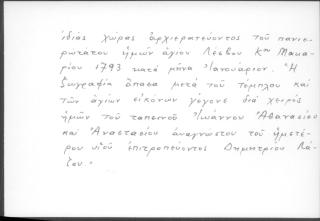 ἰδίας χώρας ἀρχιερατεύοντος τοῦ πανιε-
ρωτάτου ἡμῶν ἁγίου Λέσβου Κου Μακα-
ρίου 1793 κατά μῆνα Ἰανουάριον. Ἡ
ζωγραφία ἅπασα μετά τοῦ τέμπλου καί
τῶν ἁγίων εἰκόνων γέγονε διά χειρός
ἡμῶν τοῦ ταπεινοῦ Ἰωάννου Ἀθανασίου
καί Ἀναστασίου ἀναγνώστου τοῦ ἡμετέ-
ρου υἱοῦ ἐπιτροπεύοντος Δημητρίου Λά-
ζου."